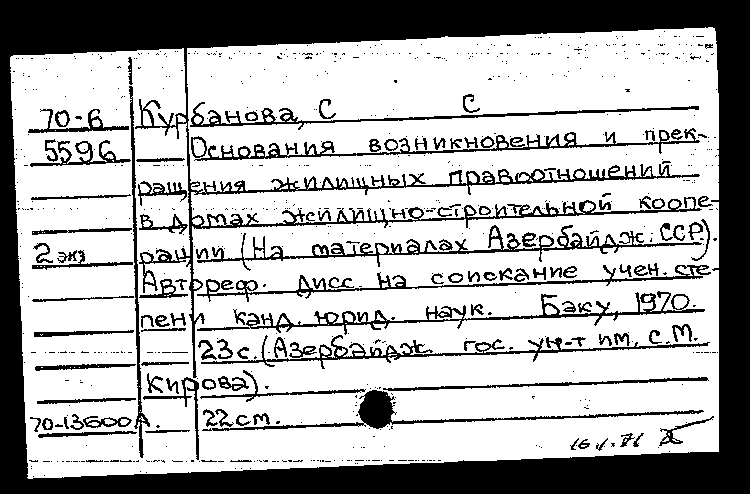 70-6 Курбанова, С С
5596 Основания возникновения и прек-
ращения жилищных правоотношений
в домах жилищно-строительной коопе-
2 экз рации (На материалах Азербайдж. ССР).
Автореф. дисс. на соискание учен. сте-
пени канд. юрид. наук. Баку, 1970.
23 с. (Азербайдж. гос. ун-т им. С.М.
Кирова).
70-13600А. 22 см.